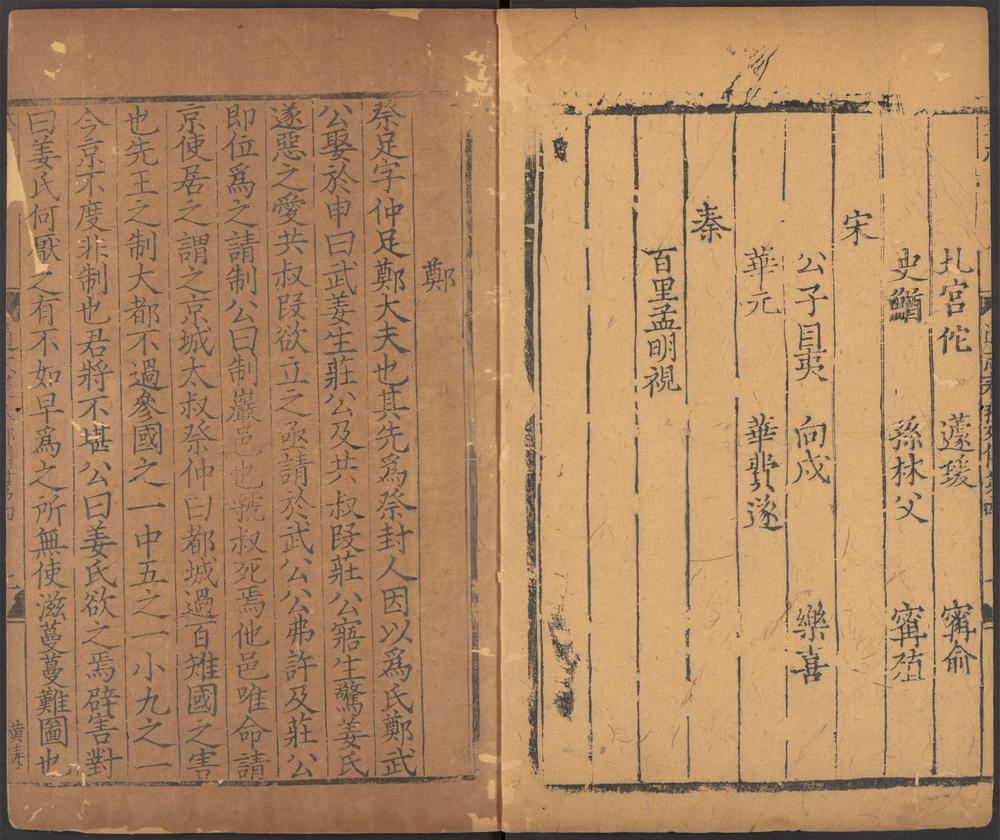 孔宫佗　蘧瑗　甯俞
史鰌　孫林父　甯殖
宋
公子目夷　向戌　樂喜
華元　華費遂
秦
百里孟明視
鄭
祭足字仲足鄭大夫也其先為祭封人因以為氏鄭武
公娶於申曰武姜生莊公及共叔段莊公寤生驚姜氏
遂惡之愛共叔段欲立之亟請於武公公弗許及莊公
即位爲之請制公曰制巖邑也虢叔死焉他邑唯命請
京使居之謂之京城太叔祭仲曰都城過百雉國之害
也先王之制大都不過參國之一中五之一小九之一
今京不度非制也君將不堪公曰姜氏欲之焉辟害對
曰姜氏何厭之有不如早爲之所無使滋蔓蔓難圖也